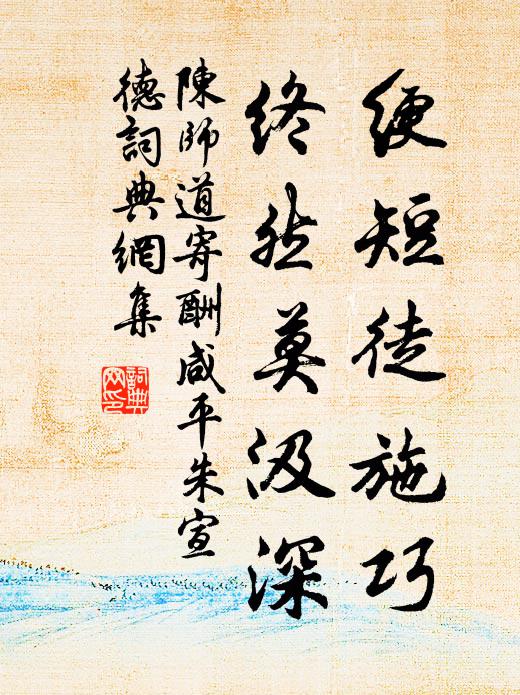 綆短徒施巧
終然莫汲深
陳師道寄酬咸平朱宣
德詞典網集
詞典網印